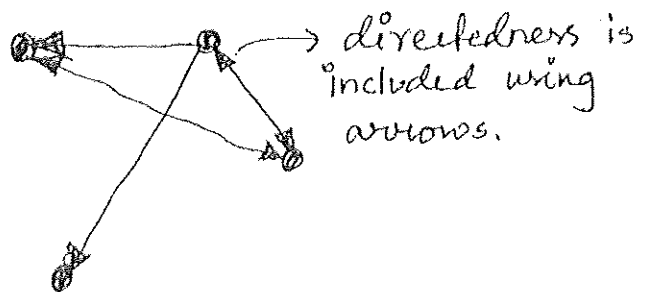 directedness is
included using
arrows.